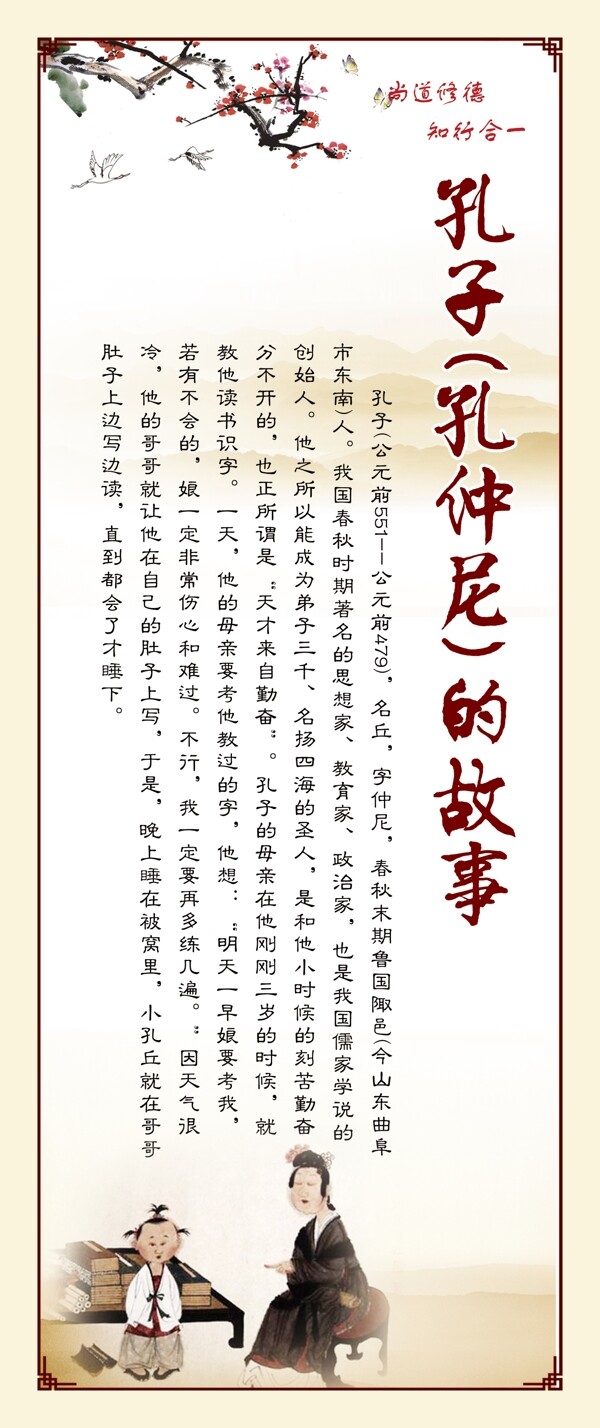 尚道修德
知行合一
孔子(孔仲尼)的故事
孔子(公元前551——公元前479)，名丘，字仲尼，春秋末期鲁国陬邑(今山东曲阜
市东南)人。我国春秋时期著名的思想家、教育家、政治家，也是我国儒家学说的
创始人。他之所以能成为弟子三千、名扬四海的圣人，是和他小时候的刻苦勤奋
分不开的，也正所谓是“天才来自勤奋”。孔子的母亲在他刚刚三岁的时候，就
教他读书识字。一天，他的母亲要考他教过的字，他想：“明天一早娘要考我，
若有不会的，娘一定非常伤心和难过。不行，我一定要再多练几遍。”因天气很
冷，他的哥哥就让他在自己的肚子上写，于是，晚上睡在被窝里，小孔丘就在哥哥
肚子上边写边读，直到都会了才睡下。